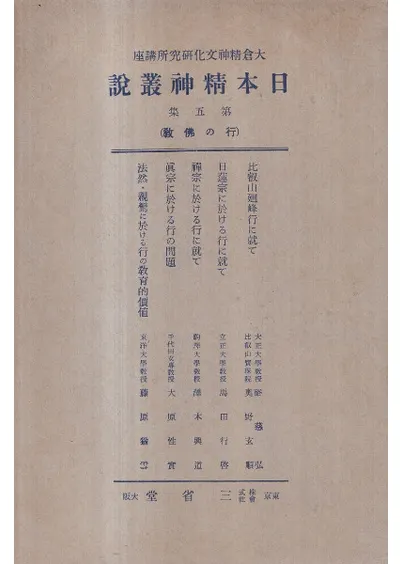 大倉精神文化研究所講座
日本精神叢說
第五集
(行の佛教)
比叡山廻峰行に就て
大正大學教授 硲慈弘
比叡山寶珠院 奥野玄順
日蓮宗に於ける行に就て
立正大學教授 馬田行啓
禪宗に於ける行に就て
駒澤大學教授 澤木興道
眞宗に於ける行の問題
千代田女專教授 大原性實
法然・親鸞に於ける行の教育的價値
東洋大學教授 藤原猶雪
東京 株式會社 三省堂 大阪